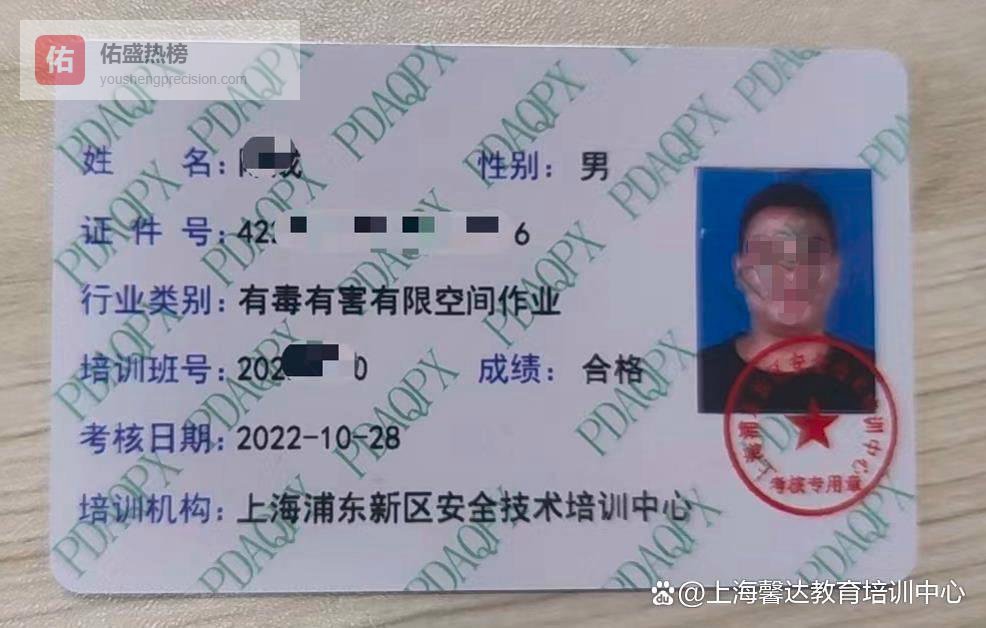 佑
佑盛热榜
youshengprecision.com
PDAQPX
姓 名: 性别: 男
证件号: 42 6
行业类别: 有毒有害有限空间作业
培训班号: 202 0 成绩: 合格
考核日期: 2022-10-28
培训机构: 上海浦东新区安全技术培训中心
考核专用章
@上海馨达教育培训中心